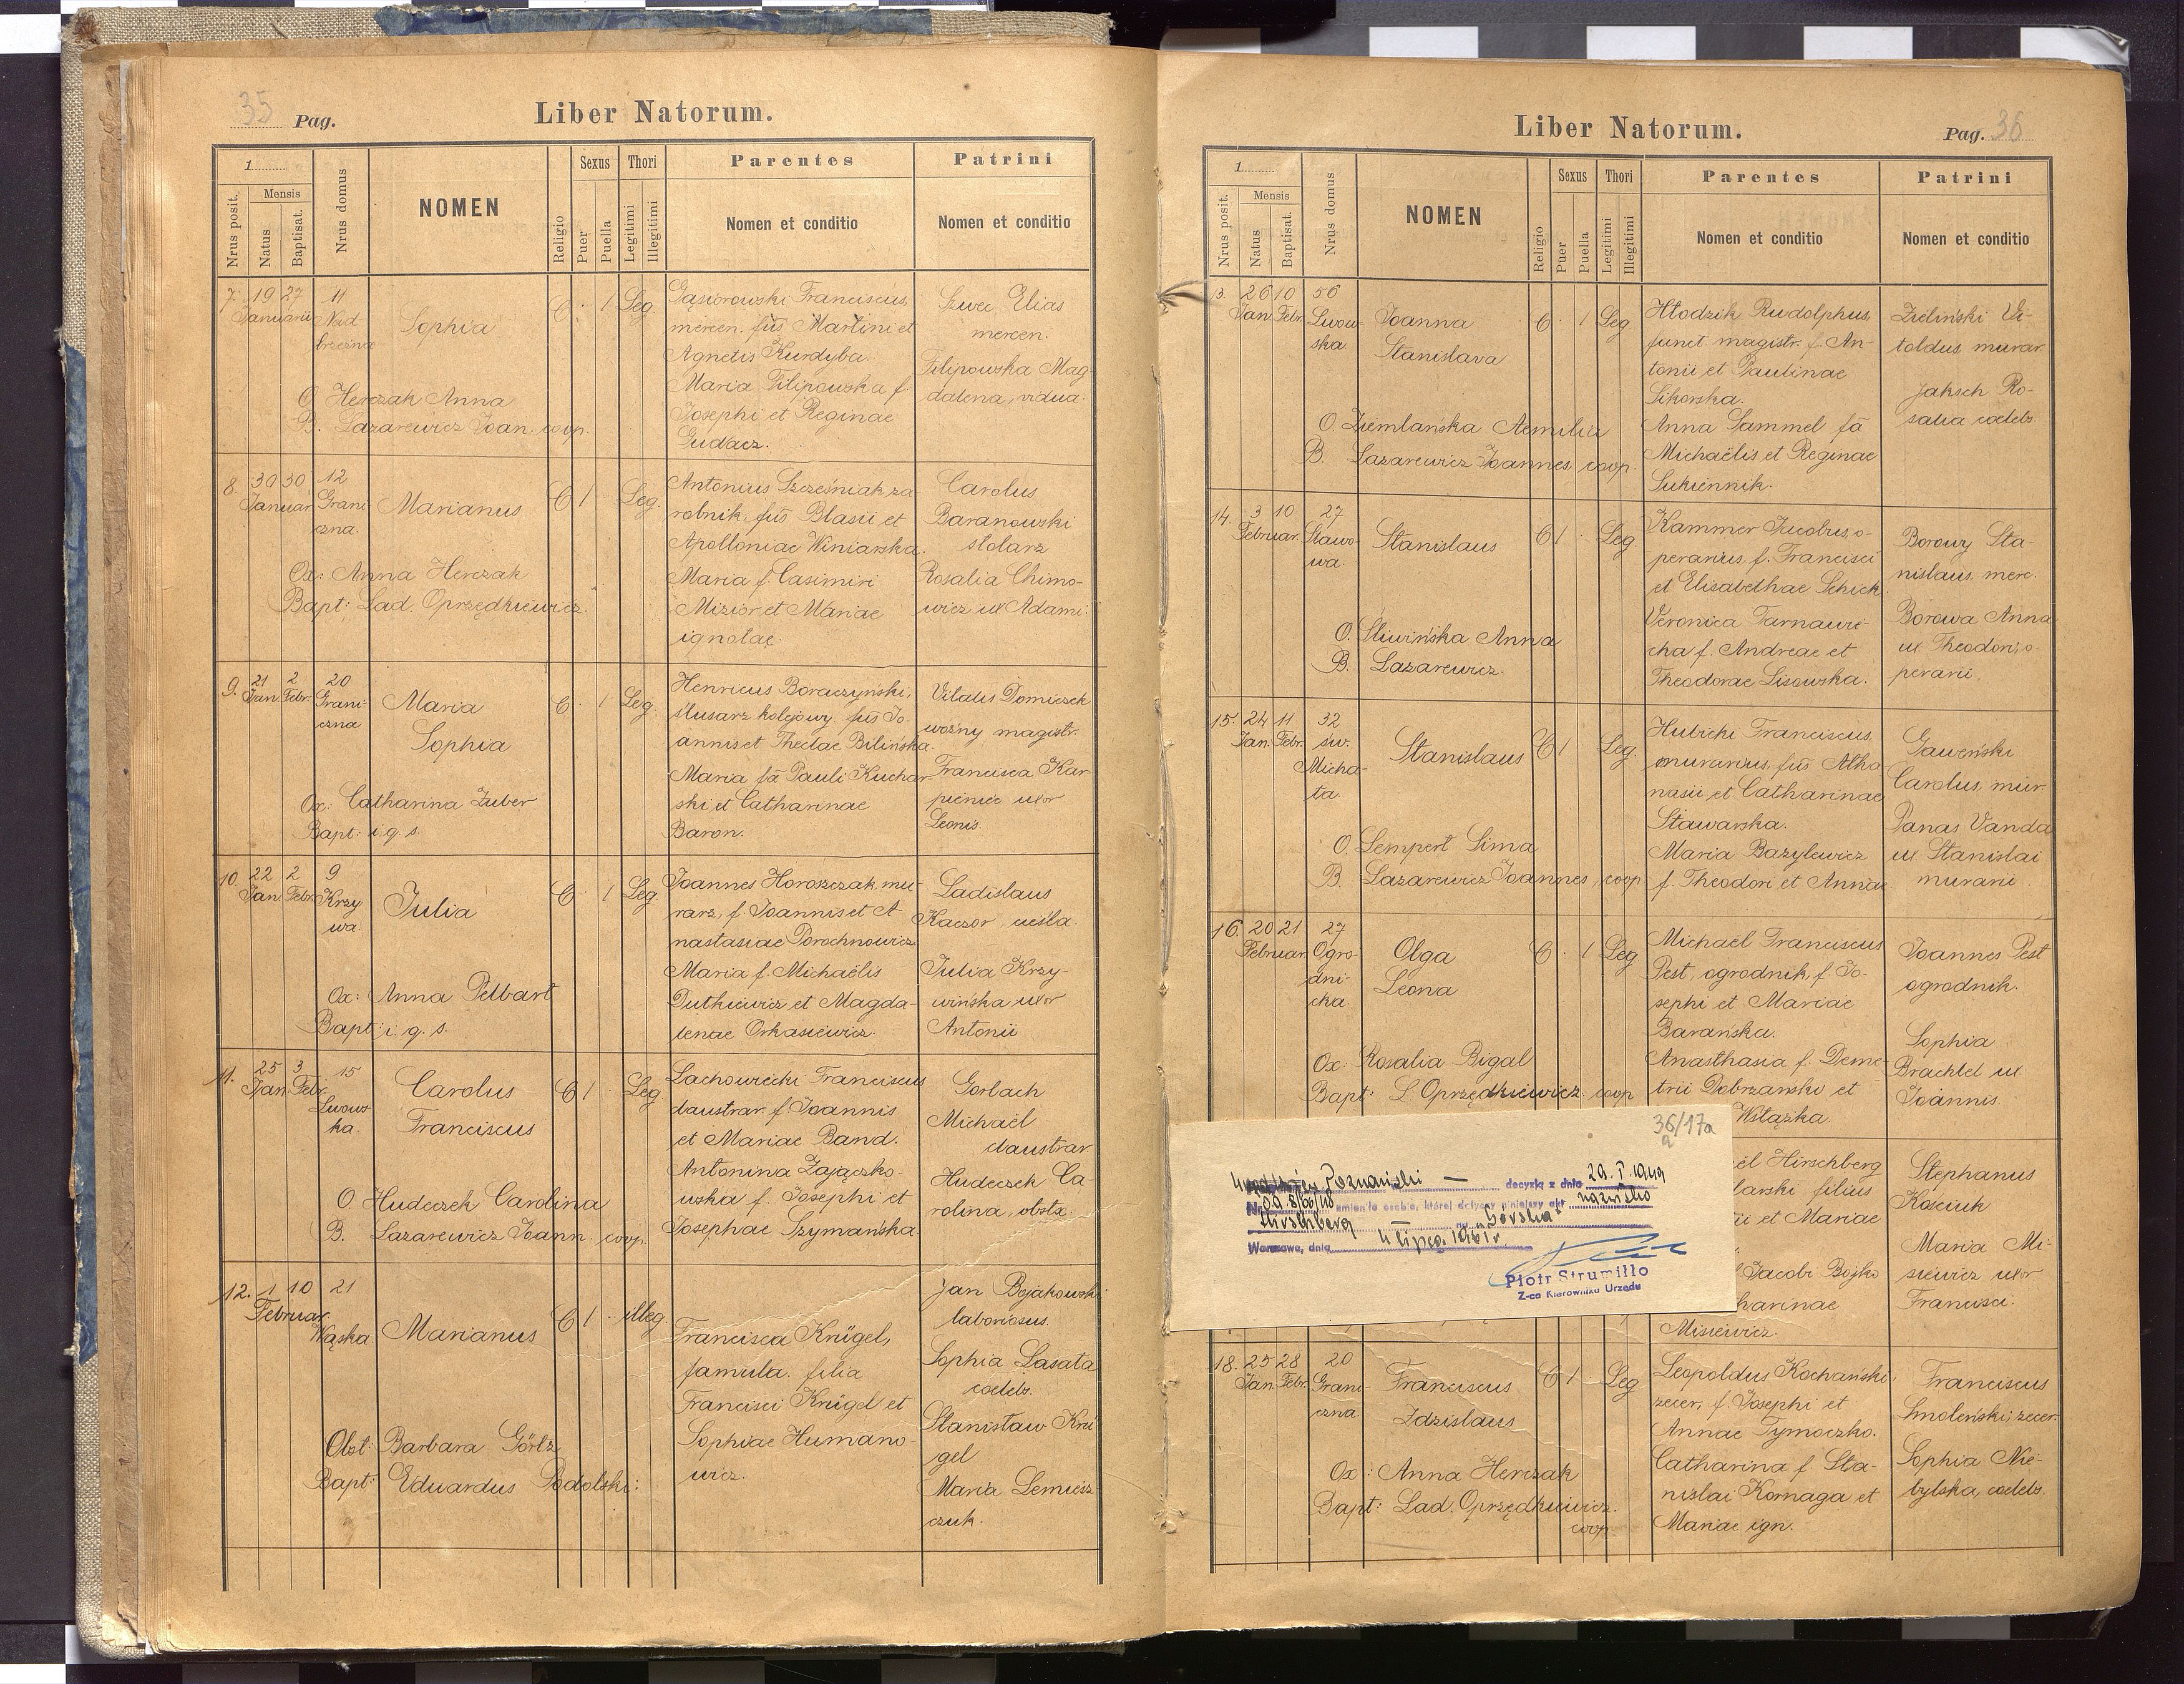 35 Pag.
Liber Natorum.
1
Nrus posit.
Mensis
Natus
Baptisat.
Nrus domus
NOMEN
Religio
Sexus
Puer
Puella
Thori
Legitimi
Illegitimi
Parentes
Nomen et conditio
Patrini
Nomen et conditio
7. 19 27 11
Januarii Nad-
brzeżna
Sophia
C. 1 Leg
O. Herczak Anna
B. Lazarewicz Joan. coop.
Gąsiorowski Franciscus,
mercen. fils Martini et
Agnetis Kurdyba.
Maria Filipowska f.
Josephi et Reginae
Gudacz.
Szwec Elias
mercen.
Filipowska Mag-
dalena, vidua.
8. 30 30 12
Januar. Grani-
czna.
Marianus
C 1 Leg.
Ox: Anna Herczak
Bapt: Lad. Oprzędkiewicz.
Antonius Szcześniak, za-
robnik, fils Blasii et
Apolloniae Winiarska.
Maria f. Casimiri
Mizior et Mariae
ignotae.
Carolus
Baranowski
stolarz
Rosalia Chimo-
wicz ux Adami.
9. 21 2 20
Jan. Febr. Grani-
czna
Maria
Sophia
C. 1 Leg.
Ox: Catharina Zuber
Bapt: i. q. s.
Henricus Boraczyński,
ślusarz kolejowy, fils Jo-
annis et Theclae Bilińska.
Maria fa Pauli Kuchar-
ski et Catharinae
Baron.
Vitalis Domiczek
woźny magistr.
Francisca Kar-
pieniec uxor
Leonis.
10. 22 2 9
Jan. Febr. Krzy-
wa.
Julia
C. 1 Leg.
Ox: Anna Pelbart
Bapt: i. q. s.
Joannes Horoszczak, mu-
rarz, f. Joannis et A-
nastasiae Porochnowicz
Maria f. Michaëlis
Dutkiewicz et Magda-
lenae Orkasiewicz.
Ladislaus
Kaczor, cieśla.
Julia Krzy-
wińska, uxor
Antonii
11. 25 3 15
Jan. Febr. Lwows-
ka
Carolus
Franciscus
C 1 Leg.
O. Hudeczek Carolina
B. Lazarewicz Joann. coop.
Lachowiecki Franciscus
claustrar. f. Joannis
et Mariae Band.
Antonina Zajączko-
wska f. Josephi et
Josephae Szymańska
Gorbach
Michaël
claustrar.
Hudeczek Ca-
rolina, obstx.
12. 1 10 21
Februar.
Wąska
Marianus
C 1 illeg.
Obst: Barbara Görtz
Bapt: Eduardus Podolski:
Francisca Krügel,
famula. filia
Francisci Krügel et
Sophiae Humano-
wicz.
Jan Bojakowski
laboriosus.
Sophia Lasata
coelebs.
Stanisław Krü-
gel
Maria Lemiesz-
czuk.
Liber Natorum.
Pag. 36
1
Nrus posit.
Mensis
Natus
Baptisat.
Nrus domus
NOMEN
Religio
Sexus
Puer
Puella
Thori
Legitimi
Illegitimi
Parentes
Nomen et conditio
Patrini
Nomen et conditio
3. 26 10 56
Jan. Febr. Lwow-
ska.
Joanna
Stanislava
C. 1 Leg
O. Ziemlańska Aemilia
B. Lazarewicz Joannes, coop.
Hłodzik Rudolphus,
funct. magistr. f. An-
tonii et Paulinae
Sikorska.
Anna Sammel fa
Michaëlis et Reginae
Sukiennik.
Zieliński Vi-
toldus, murar.
Jaksch Ro-
salia coelebs.
14. 3 10 27
Februar. Stawo-
wa.
Stanislaus
C 1 Leg
O. Śliwińska Anna
B. Lazarewicz
Kammer Jacobus, o-
perarius, f. Francisci
et Elisabethae Schick.
Veronica Tarnawie-
cka f. Andreae et
Theodorae Lisowska.
Borowy Sta-
nislaus, merc.
Borowa Anna
ux. Theodori, o-
perarii.
15. 24 11 32
Jan. Febr. św.
Micha-
ła.
Stanislaus
C 1 Leg.
O. Lempert Sima
B. Lazarewicz Joannes, coop
Hubicki Franciscus,
murarius, fils Atha-
nasii et Catharinae
Stawarska.
Maria Bazylewicz
f. Theodori et Annae.
Gaweński
Carolus, mur.
Panas Vanda
ux. Stanislai
murarii.
16. 20 21 27
Februar. Ogro-
dni-
cka.
Olga
Leona
C. 1 Leg
Ox: Rosalia Bigal
Bapt: L. Oprzędkiewicz. coop
Michaël Franciscus
Pest, ogrodnik, f. Jo-
sephi et Mariae
Barańska.
Anasthasia f. Deme-
trii Dobrzanski et
Wstążka.
Joannes Pest
ogrodnik.
Sophia
Brachtel ux
Joannis.
36/17a
Poznański — decyzją z dnia 29.I.1949
zmieniło osobie, której dotyczy niniejszy akt nazwisko
Hirschberg na „Górski”
Warszawa, dnia 4 lipca 1961 r.
Piotr Strumiłło
Z-ca Kierownika Urzędu
ël Hirschberg
larski filius
et Mariae
Jacobi Bojko
harinae
Misiewicz.
Stephanus
Kościuk
Maria Mi-
siewicz uxor
Francisci.
18. 25 28 20
Jan. Febr. Grani-
czna.
Franciscus
Zdzislaus
C 1 Leg
Ox: Anna Herczak
Bapt: Lad. Oprzędkiewicz.
coop.
Leopoldus Kochański,
zecer, f. Josephi et
Annae Tymoczko.
Catharina f. Sta-
nislai Kornaga et
Mariae ign.
Franciscus
Smoleński, zecer.
Sophia Nie-
bylska, coelebs.